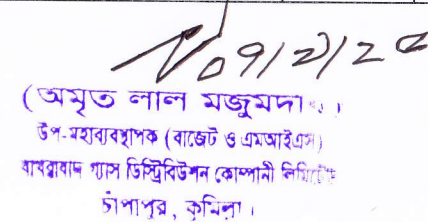 ০৭/২/২৫
(অমৃত লাল মজুমদার)
উপ-মহাব্যবস্থাপক (বাজেট ও এমআইএস)
বাখরাবাদ গ্যাস ডিস্ট্রিবিউশন কোম্পানী লিমিটেড
চাঁপাপুর, কুমিল্লা।